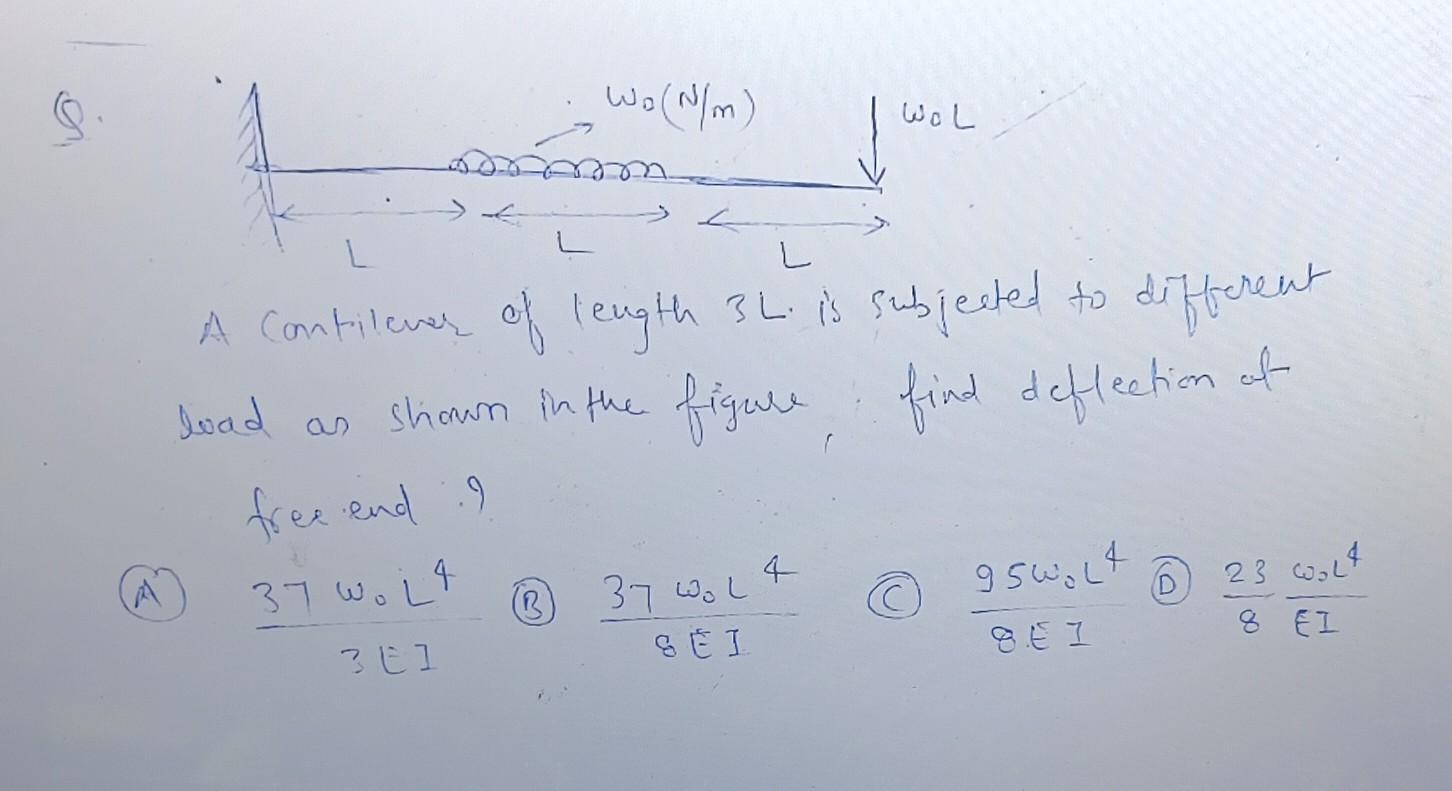 Q.
w₀(N/m)
w₀L
L L L
A Contilever of length 3L. is subjected to different
load as shown in the figure, find deflection at
free end ?
(A) 37 w₀L⁴ / 3EI (B) 37 w₀L⁴ / 8EI (C) 95w₀L⁴ / 8EI (D) 23/8 w₀L⁴/EI